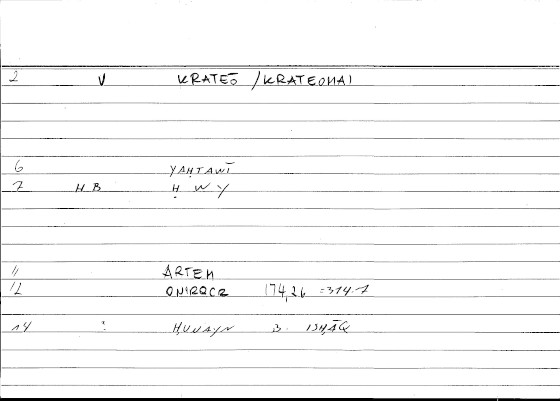 2 V KRATEŌ / KRATEOMAI
6 YAḤTAWĪ
7 HB Ḥ W Y
11 ARTEM
12 ONIROCR 174,26 = 314.1
14 : ḤUNAYN B. ISḤĀQ